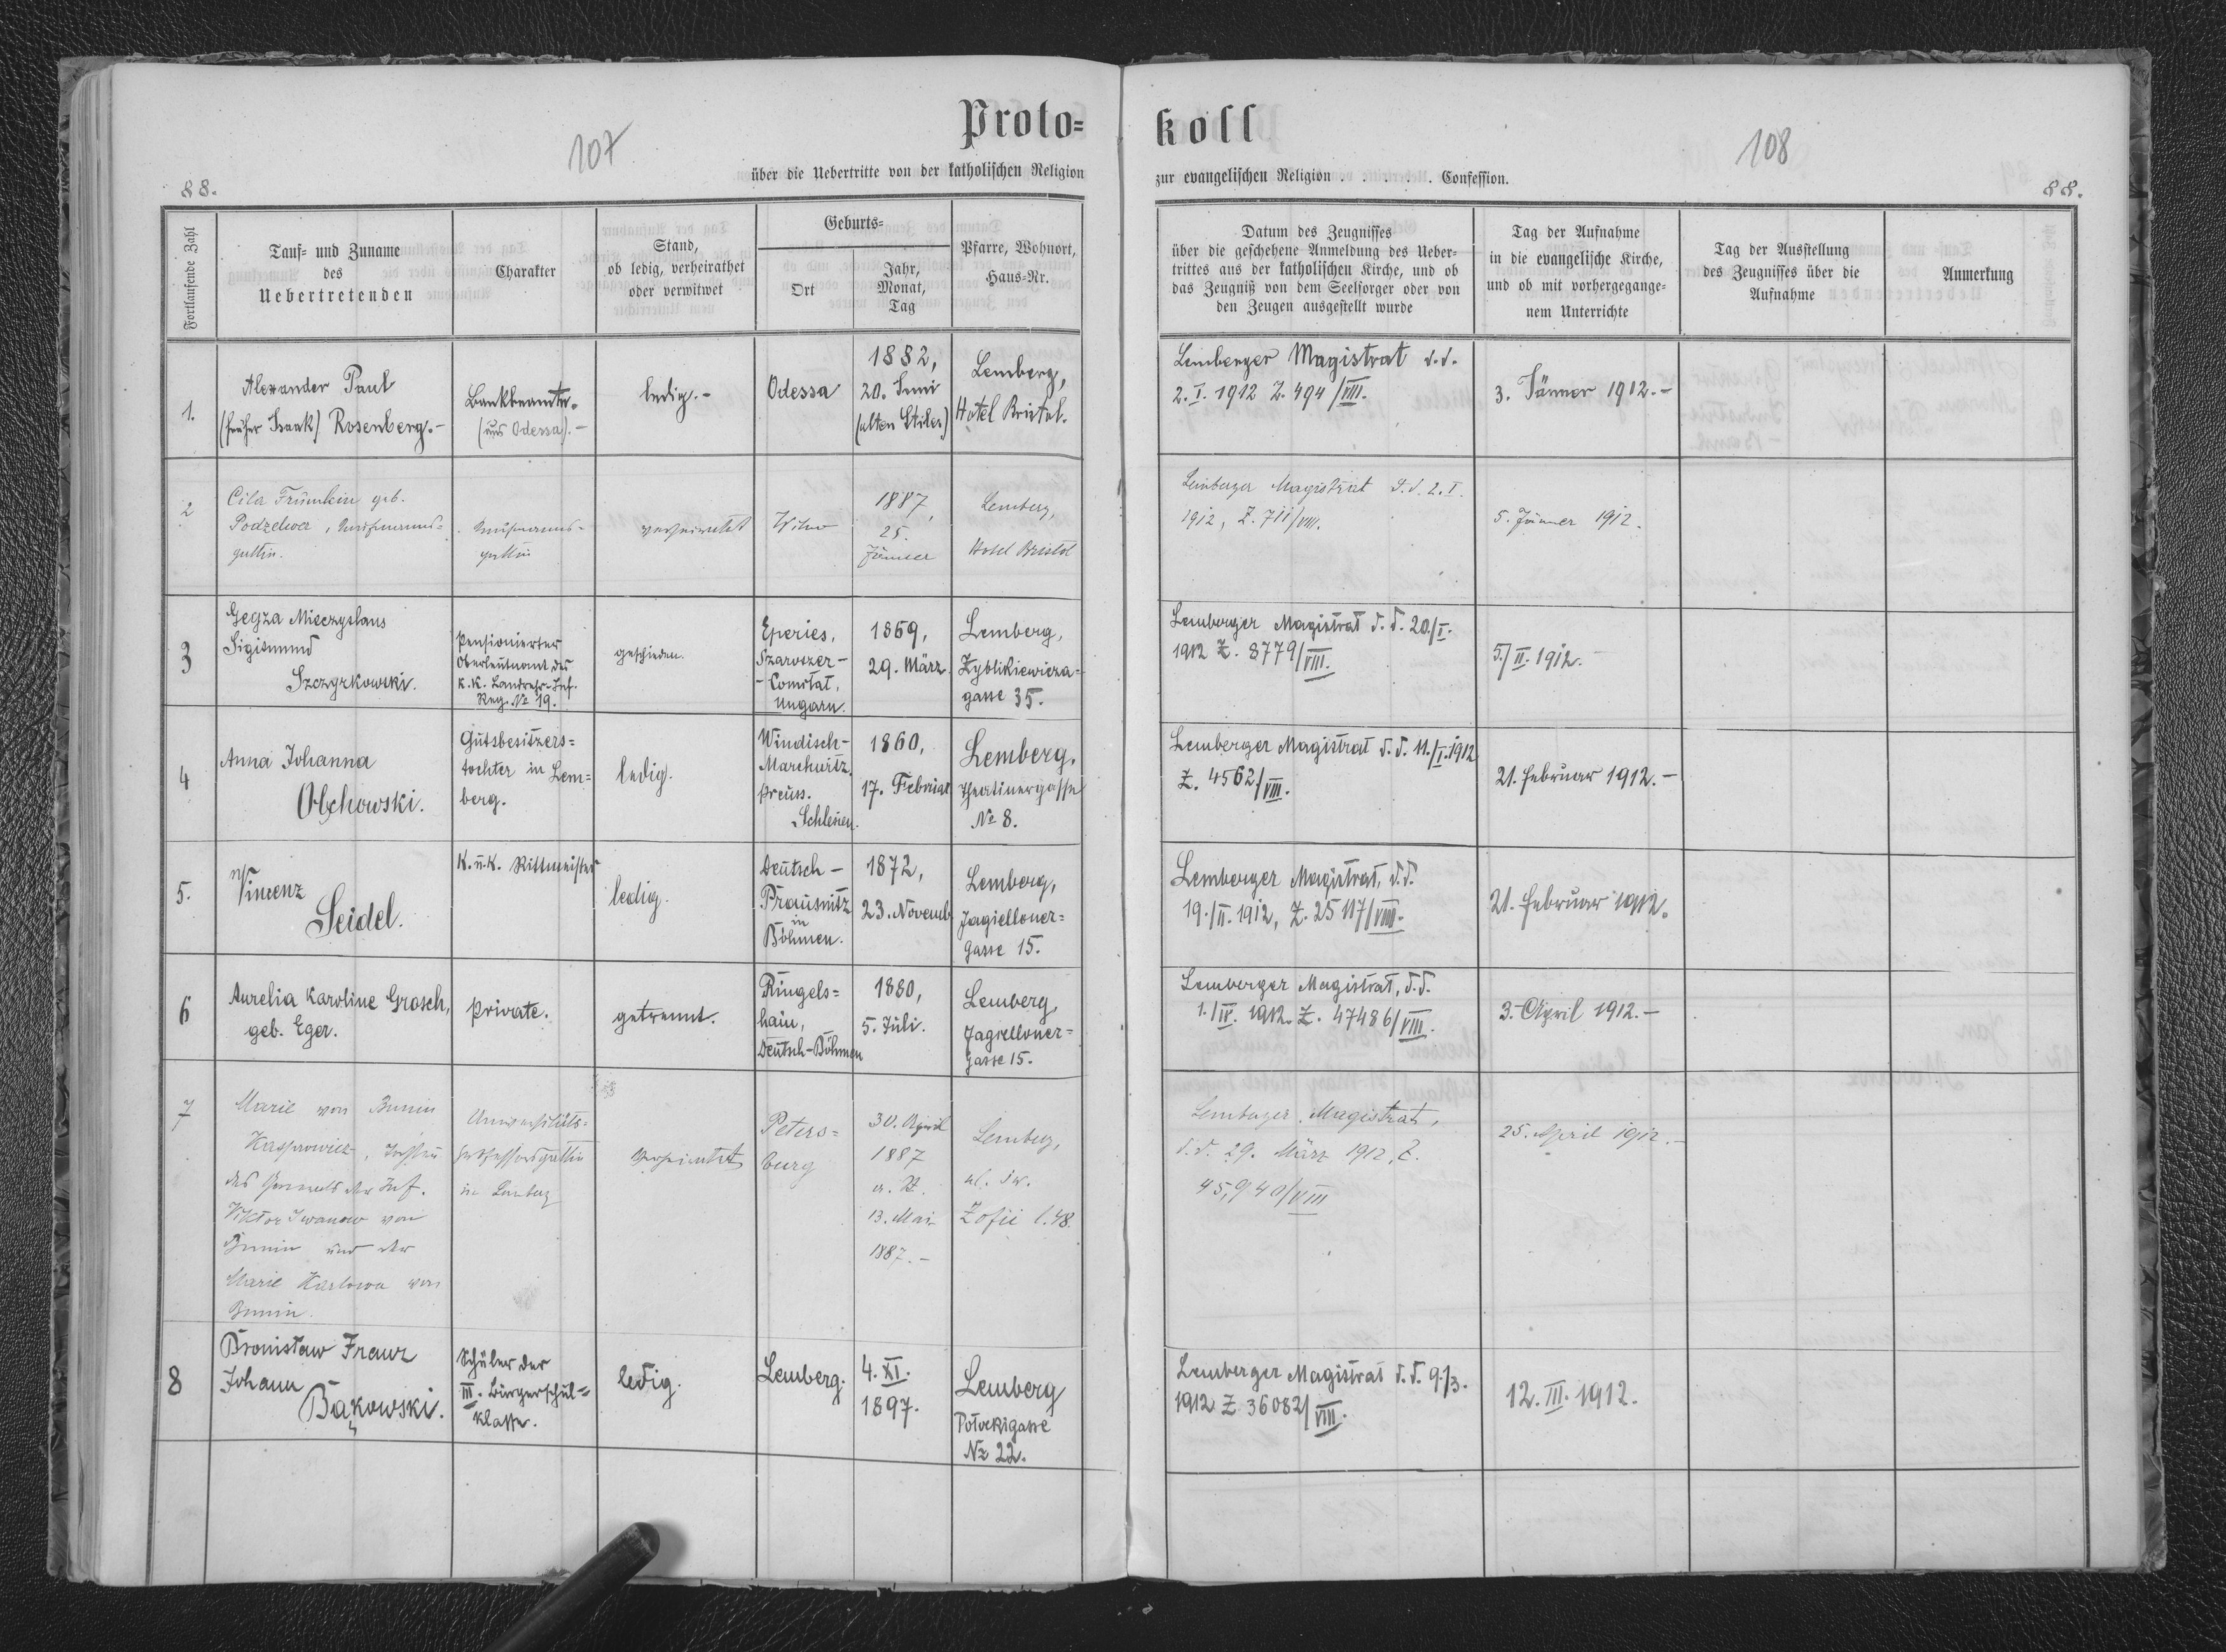 Proto=
koll
107
108
über die Uebertritte von der katholischen Religion
zur evangelischen Religion . . . . . . Confession.
88.
88.
Fortlaufende Zahl
Tauf= und Zuname
des
Uebertretenden
Charakter
Stand,
ob ledig, verheirathet
oder verwitwet
Geburts=
Ort
Jahr,
Monat,
Tag
Pfarre, Wohnort,
Haus=Nr.
Datum des Zeugnisses
über die geschehene Anmeldung des Ueber=
trittes aus der katholischen Kirche, und ob
das Zeugniß von dem Seelsorger oder von
den Zeugen ausgestellt wurde
Tag der Aufnahme
in die evangelische Kirche,
und ob mit vorhergegange=
nem Unterrichte
Tag der Ausstellung
des Zeugnisses über die
Aufnahme
Anmerkung
1.
Alexander Paul
(früher Isaak) Rosenberg.-
Bankbeamter.
(aus Odessa).-
ledig.-
Odessa
1882,
20. Juni
(alten Stiles)
Lemberg,
Hotel Bristol.
Lemberger Magistrat d.d.
2. I. 1912 Z. 494/VIII.
3. Jänner 1912.-
2
Cila Frumkin geb.
Podzelwer, Kaufmanns=
gattin.
Kaufmanns=
gattin
verheiratet
Wilno
1887,
25.
Jänner
Lemberg,
Hotel Bristol
Lemberger Magistrat d.d. 2. I.
1912, Z. 711/VIII.
5. Jänner 1912.
3
Gegza Mieczyslaus
Sigismund
Szczyrkowski.
Pensionierter
Oberleutnant des
k.k. Landwehr-Inf.
Reg. № 19.
geschieden.
Eperies,
Szaroszer-
-Comitat,
Ungarn.
1869,
29. März.
Lemberg,
Zyblikiewicza=
gasse 35.
Lemberger Magistrat d.d. 20./I.
1912 Z. 8779/VIII.
5./II. 1912.-
4
Anna Johanna
Olchowski.
Gutsbesitzers=
tochter in Lem=
berg.
ledig.
Windisch-
Marchwitz,
Preuss.
Schlesien.
1860,
17. Februar
Lemberg.
Theatinergasse
№ 8.
Lemberger Magistrat d.d. 11./I. 1912
Z. 4562/VIII.
21. Februar 1912.-
5.
Vincenz
Seidel.
K.u.K. Rittmeister
ledig.
Deutsch-
Prausnitz
in
Böhmen.
1872,
23. Novemb.
Lemberg,
Jagielloner=
gasse 15.
Lemberger Magistrat, d.d.
19./II. 1912, Z. 25117/VIII.
21. Februar 1912.
6
Aurelia Karoline Grosch,
geb. Eger.
Private.
getrennt.
Ringels=
hain,
Deutsch-Böhmen
1880,
5. Juli.
Lemberg,
Jagielloner=
gasse 15.
Lemberger Magistrat, d.d.
1./IV. 1912. Z. 47486/VIII.
3. April 1912.-
7
Marie von Bunin
Kasprowicz, Tochter
des Generals der Inf.
Viktor Iwanow von
Bunin und der
Marie Karlowa von
Bunin.
Universitäts=
professorsgattin
in Lemberg
verheiratet
Peters=
burg
30. April
1887
a. St.
13. Mai
1887.-
Lemberg,
ul. św.
Zofii l.48.
Lemberger Magistrat,
d.d. 29. März 1912, Z.
45,940/VIII
25. April 1912.-
8
Bronisław Franz
Johann
Bąkowski.
Schüler der
III. Bürgerschul=
klasse.
ledig.
Lemberg.
4. XI.
1897.
Lemberg
Potockigasse
Nr 22.
Lemberger Magistrat d.d. 9./3.
1912 Z 36082/VIII.
12. III. 1912.